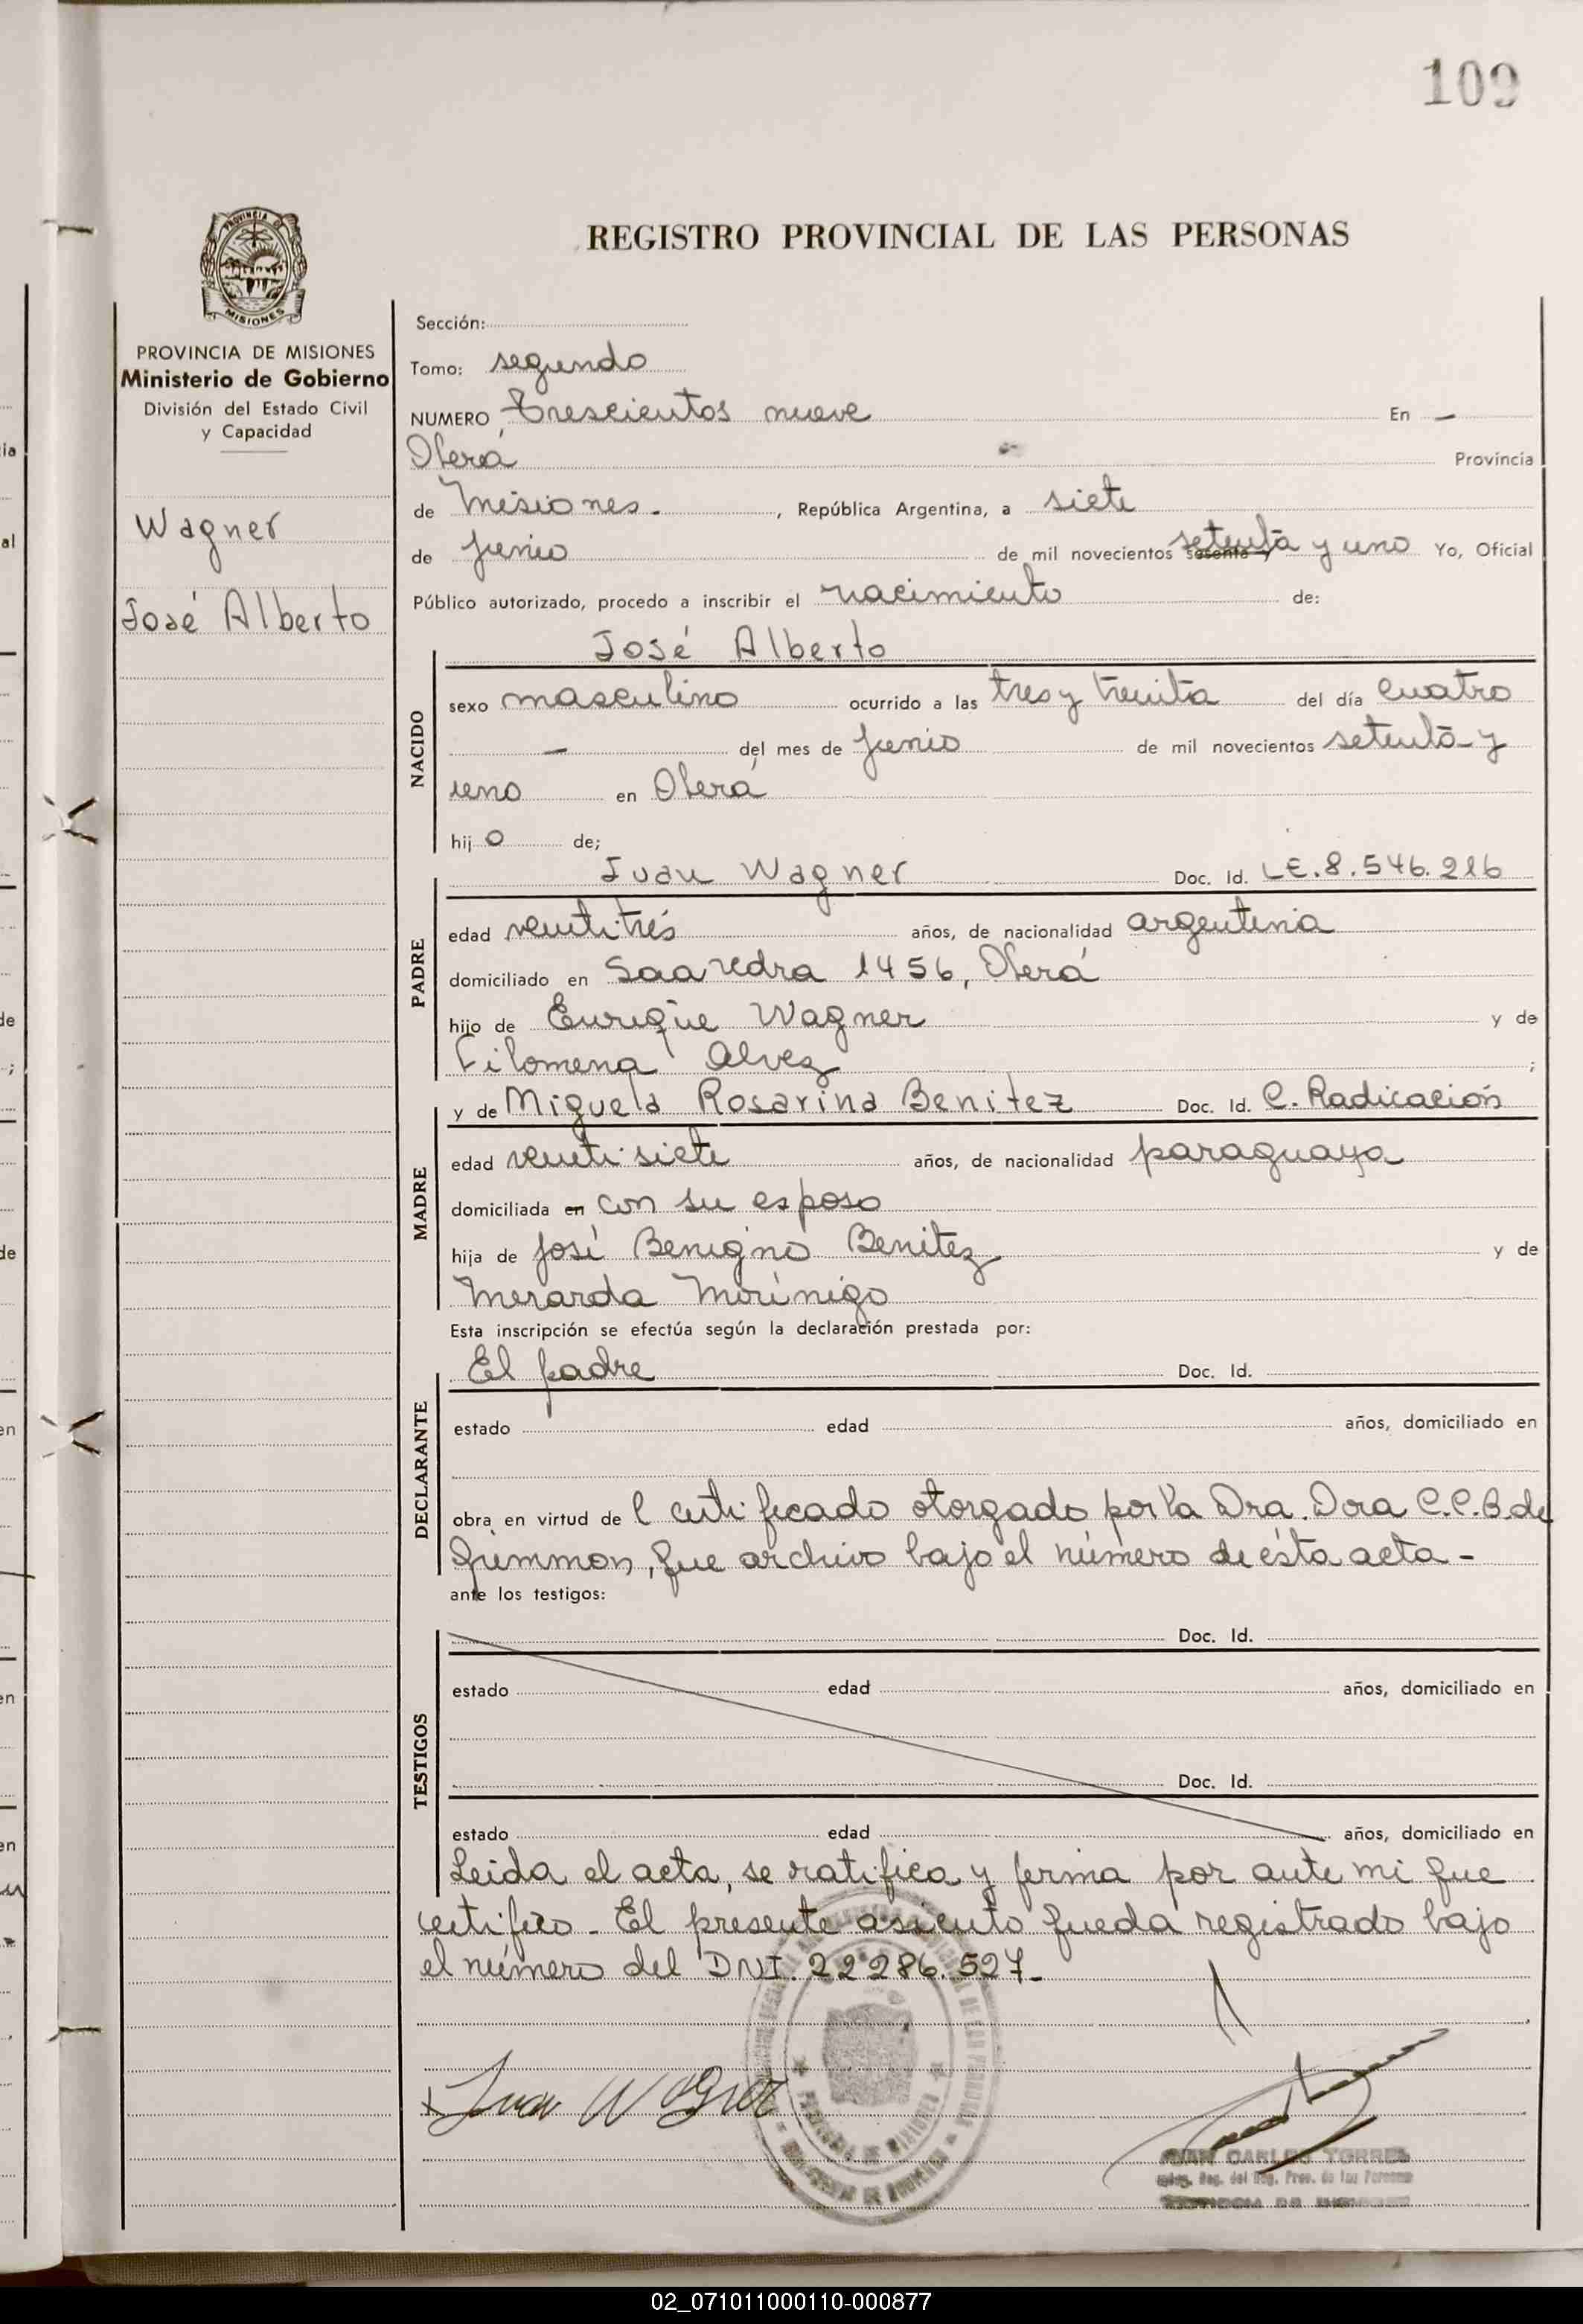 109
REGISTRO PROVINCIAL DE LAS PERSONAS
PROVINCIA DE
MISIONES
PROVINCIA DE MISIONES
Ministerio de Gobierno
División del Estado Civil
y Capacidad
Wagner
José Alberto
Sección:
Tomo: segundo
NUMERO Trescientos nueve En -
Oberá Provincia
de Misiones. , República Argentina, a siete
de junio de mil novecientos sesenta y setenta y uno Yo, Oficial
Público autorizado, procedo a inscribir el nacimiento de:
José Alberto
NACIDO
sexo masculino ocurrido a las tres y treinta del día cuatro
- del mes de junio de mil novecientos setenta y
uno en Oberá
hij o de;
Juan Wagner Doc. Id. LE. 8.546.216
PADRE
edad veintitrés años, de nacionalidad argentina
domiciliado en Saavedra 1456, Oberá
hijo de Enrique Wagner y de
Filomena Alvez ;
y de Miguela Rosarina Benitez Doc. Id. C. Radicación
MADRE
edad veintisiete años, de nacionalidad paraguaya
domiciliada en con su esposo
hija de José Benigno Benitez y de
Merarda Morínigo
Esta inscripción se efectúa según la declaración prestada por:
El padre Doc. Id.
DECLARANTE
estado edad años, domiciliado en
obra en virtud de l certificado otorgado por la Dra. Dora C.C.B. de
que archivo bajo el número de ésta acta -
ante los testigos:
Doc. Id.
TESTIGOS
estado edad años, domiciliado en
Doc. Id.
estado edad años, domiciliado en
Leida el acta, se ratifica y firma por ante mi que
certifico - El presente asiento queda registrado bajo
el número del DNI. 22286.527 -
x Juan Wagner
JUAN CARLOS TORRES
02_071011000110-000877